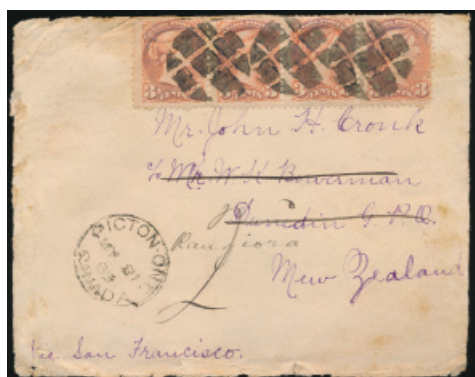 3 CENTS 3
Mr. John H. Cronk
c/o Mr. W. K. Bowerman
Dunedin G. P. O.
Rangiora
New Zealand
PICTON-ONT.
CANADA
Via San Francisco.